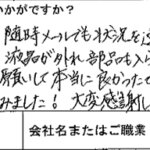 いかがですか？
随時メールでも状況を
液晶が外れ部品も入
願いして本当に良かったで
みました！大変感謝し
会社名またはご職業